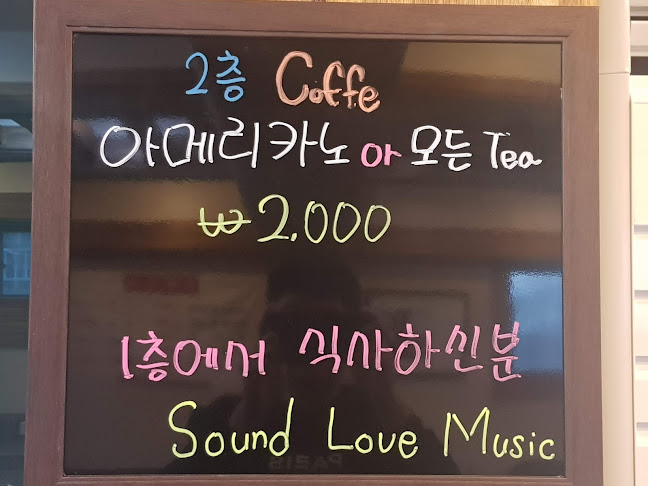 2층 Coffe
아메리카노 or 모든 Tea
₩2.000
1층에서 식사하신분
Sound Love Music